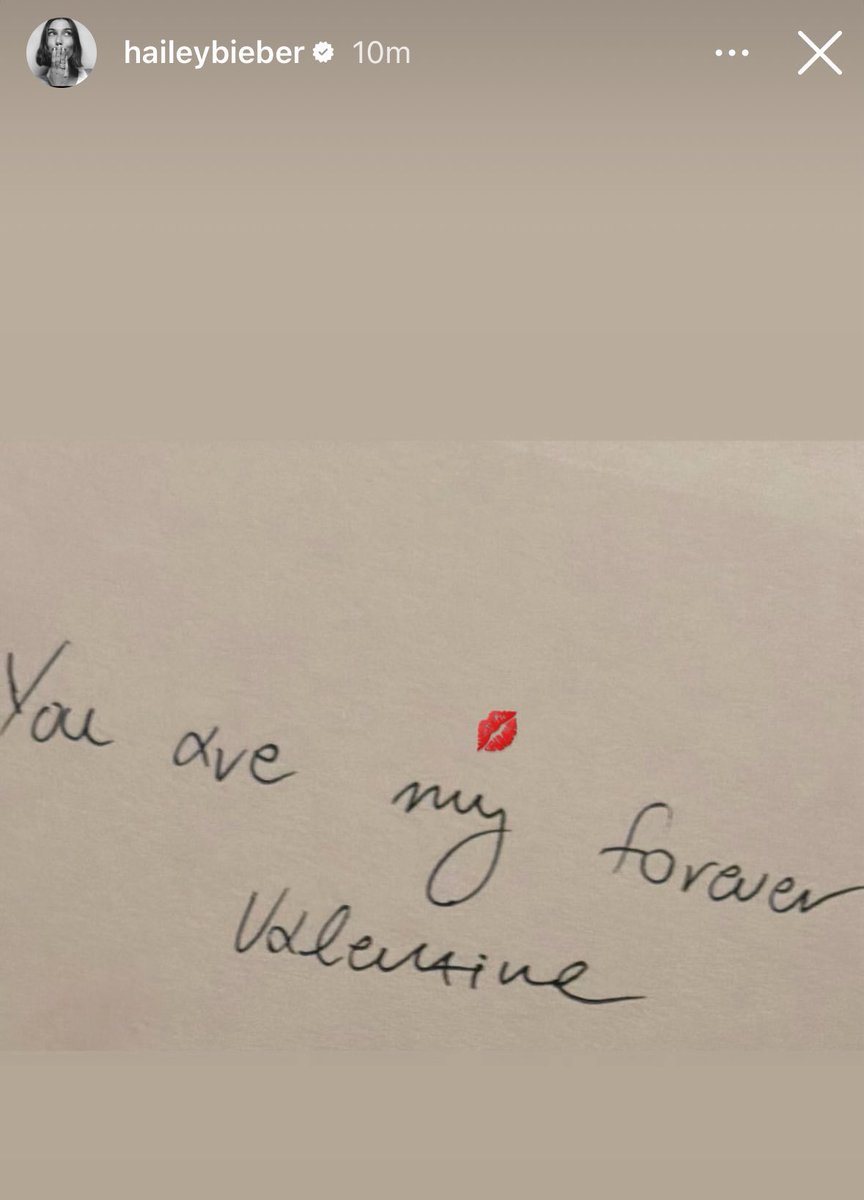 haileybieber 10m
You are my forever
Valentine